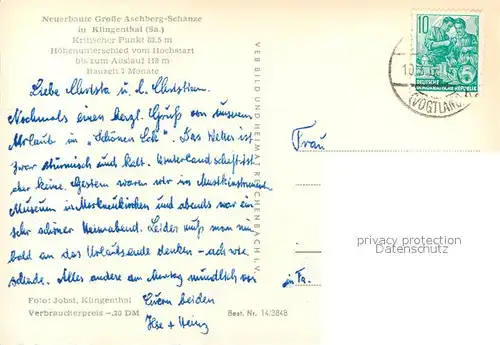 Neuerbaute Große Aschberg-Schanze
in Klingenthal (Sa.)
Kritischer Punkt 82,5 m
Höhenunterschied vom Hochstart
bis zum Auslauf 118 m
Bauzeit 7 Monate
Liebe Christa u. l. Christian.
Nochmals einen herzl. Gruß von unserem
Urlaub in "Schönen Eck". Das Wetter ist
zwar stürmisch und kalt. Winterlandschaft ist
aber keine. Gestern waren wir im Musikinstrument
Museum in Markneukirchen und abends war ein
sehr schöner Heimabend. Leider muß man nun
bald an das Urlaubsende denken - ach wie
schade. Alles andere am mündlich
Euern beiden
Ilse + Heinz
Foto: Jobst, Klingenthal
Verbraucherpreis -,20 DM
Best. Nr. 14/3848
VEB BILD UND HEIMAT REICHENBACH I. V.
10
DEUTSCHE
DEMOKRATISCHE REPUBLIK
(VOGTLAND)
Frau
in Fa.
privacy protection
Datenschutz